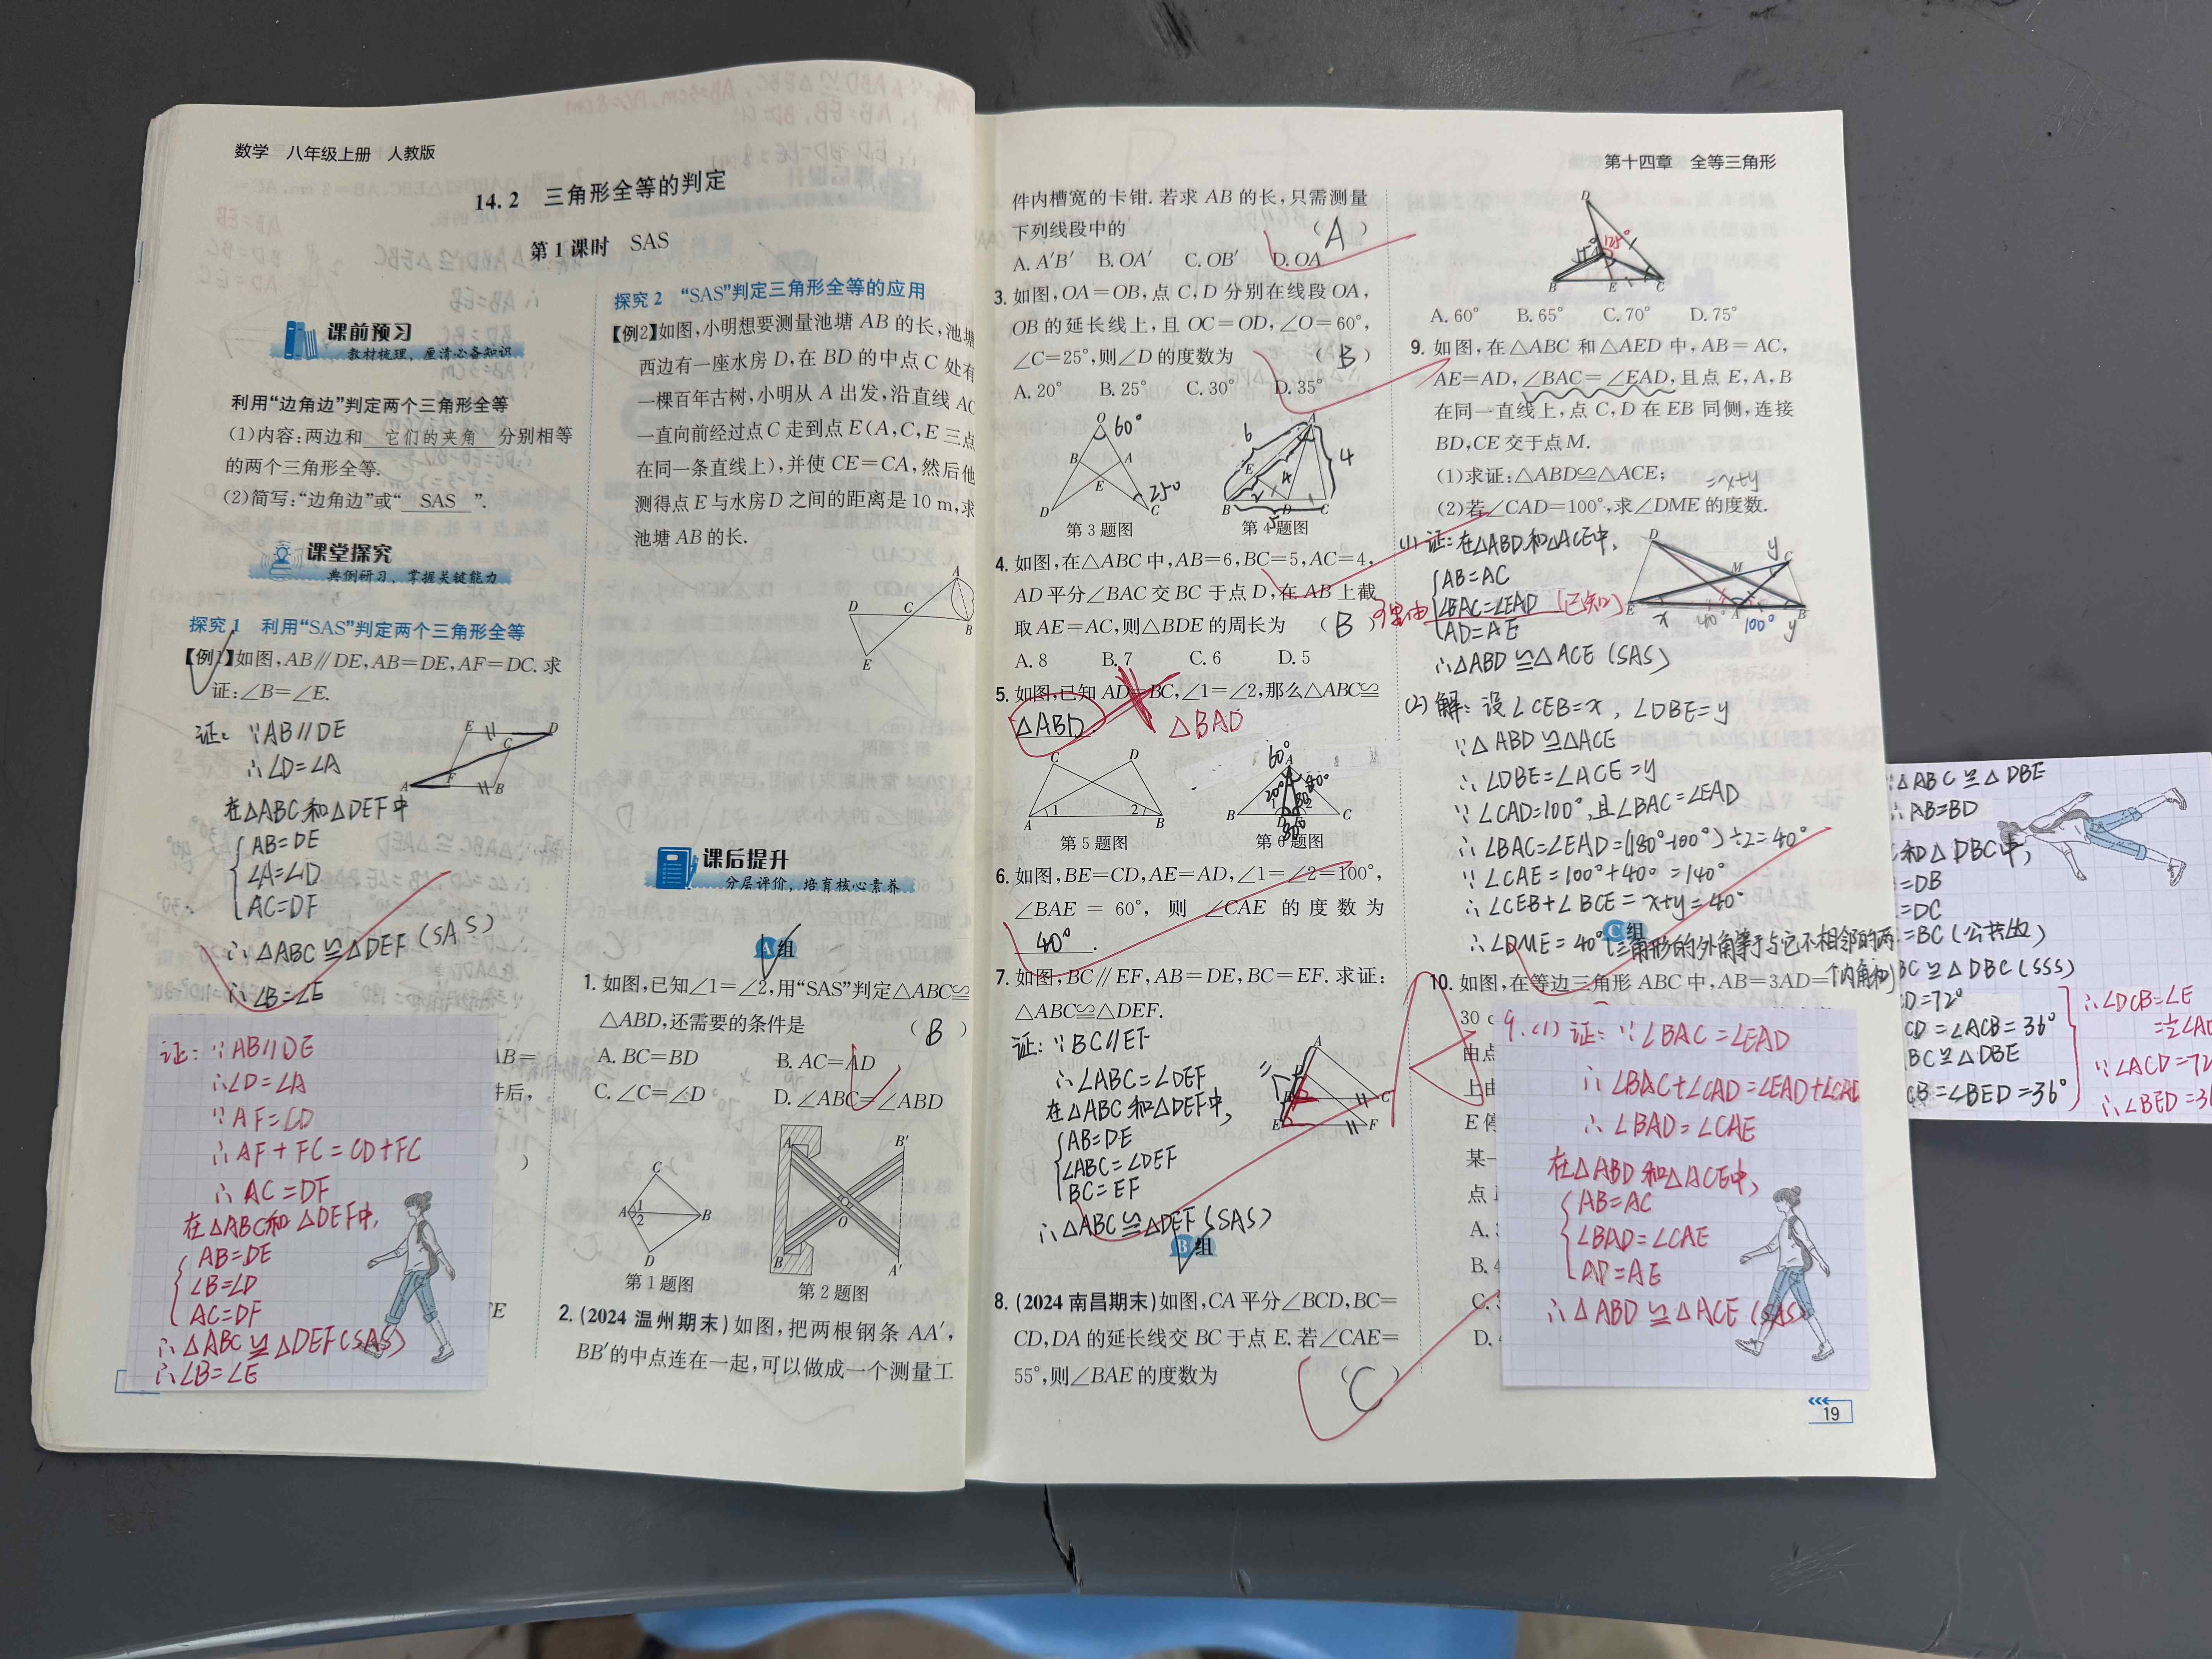 数学 八年级上册 人教版
14.2 三角形全等的判定
第1课时 SAS
课前预习
教材梳理,厘清必备知识
利用“边角边”判定两个三角形全等
(1)内容:两边和 它们的夹角 分别相等
的两个三角形全等.
(2)简写:“边角边”或“ SAS ”.
课堂探究
典例研习,掌握关键能力
探究1 利用“SAS”判定两个三角形全等
【例1】如图,AB∥DE,AB=DE,AF=DC.求
证:∠B=∠E.
证:∵AB∥DE
∴∠D=∠A
在△ABC和△DEF中
AB=DE
∠A=∠D
AC=DF
∴△ABC≌△DEF(SAS)
∴∠B=∠E
E D C A F B
证:∵AB∥DE
∴∠D=∠A
∵AF=CD
∴AF+FC=CD+FC
∴AC=DF
在△ABC和△DEF中,
AB=DE
∠B=∠D
AC=DF
∴△ABC≌△DEF(SAS)
∴∠B=∠E
AB=
件后,
)
探究2 “SAS”判定三角形全等的应用
【例2】如图,小明想要测量池塘AB的长,池塘
西边有一座水房D,在BD的中点C处有
一棵百年古树,小明从A出发,沿直线AC
一直向前经过点C走到点E(A,C,E三点
在同一条直线上),并使CE=CA,然后他
测得点E与水房D之间的距离是10 m,求
池塘AB的长.
A D C B E
课后提升
分层评价,培育核心素养
A组
1. 如图,已知∠1=∠2,用“SAS”判定△ABC≌
△ABD,还需要的条件是 ( B )
A. BC=BD B. AC=AD
C. ∠C=∠D D. ∠ABC=∠ABD
C A 1 2 B D
第1题图
A B′ O B A′
第2题图
2. (2024温州期末)如图,把两根钢条AA′,
BB′的中点连在一起,可以做成一个测量工
第十四章 全等三角形
件内槽宽的卡钳.若求AB的长,只需测量
下列线段中的 ( A )
A. A′B′ B. OA′ C. OB′ D. OA
3. 如图,OA=OB,点C,D分别在线段OA,
OB的延长线上,且OC=OD,∠O=60°,
∠C=25°,则∠D的度数为 ( B )
A. 20° B. 25° C. 30° D. 35°
O 60° B A E 25° D C
第3题图
A 6 4 E 4 2 1 B D C 5
第4题图
4. 如图,在△ABC中,AB=6,BC=5,AC=4,
AD平分∠BAC交BC于点D,在AB上截
取AE=AC,则△BDE的周长为 ( B )
A. 8 B. 7 C. 6 D. 5
5. 如图,已知AD=BC,∠1=∠2,那么△ABC≌
△ABD . △BAD
C D A 1 2 B
第5题图
60° A 20° 40° B D E C
第6题图
6. 如图,BE=CD,AE=AD,∠1=∠2=100°,
∠BAE=60°,则∠CAE的度数为
40° .
7. 如图,BC∥EF,AB=DE,BC=EF.求证:
△ABC≌△DEF.
证:∵BC∥EF
∴∠ABC=∠DEF
在△ABC和△DEF中,
AB=DE
∠ABC=∠DEF
BC=EF
∴△ABC≌△DEF(SAS)
A C E F
B组
8. (2024南昌期末)如图,CA平分∠BCD,BC=
CD,DA的延长线交BC于点E.若∠CAE=
55°,则∠BAE的度数为 ( C )
D B E C
A. 60° B. 65° C. 70° D. 75°
9. 如图,在△ABC和△AED中,AB=AC,
AE=AD,∠BAC=∠EAD,且点E,A,B
在同一直线上,点C,D在EB同侧,连接
BD,CE交于点M.
(1)求证:△ABD≌△ACE;
=x+y
(2)若∠CAD=100°,求∠DME的度数.
(1)证:在△ABD和△ACE中,
AB=AC
∠BAC=∠EAD (已知)
AD=AE
∴△ABD≌△ACE(SAS)
D y C M E x 40° A 100° y B
(2)解:设∠CEB=x,∠DBE=y
∵△ABD≌△ACE
∴∠DBE=∠ACE=y
∵∠CAD=100°,且∠BAC=∠EAD
∴∠BAC=∠EAD=(180°-100°)÷2=40°
∵∠CAE=100°+40°=140°
∴∠CEB+∠BCE=x+y=40°
∴∠DME=40°(三角形的外角等于与它不相邻的两
个内角和)
C组
10. 如图,在等边三角形ABC中,AB=3AD=
30 c
由点
上由
E停
某一
点
A.
B. 4
C.
D.
9.(1)证:∵∠BAC=∠EAD
∴∠BAC+∠CAD=∠EAD+∠CAD
∴∠BAD=∠CAE
在△ABD和△ACE中,
AB=AC
∠BAD=∠CAE
AD=AE
∴△ABD≌△ACE(SAS)
19
∵△ABC≌△DBE
∴AB=BD
和△DBC中,
=DB
=DC
=BC(公共边)
BC≌△DBC(SSS)
CD=72°
CD=∠ACB=36°
BC≌△DBE
CB=∠BED=36°
∴∠DCB=∠E
∵∠ACD=72